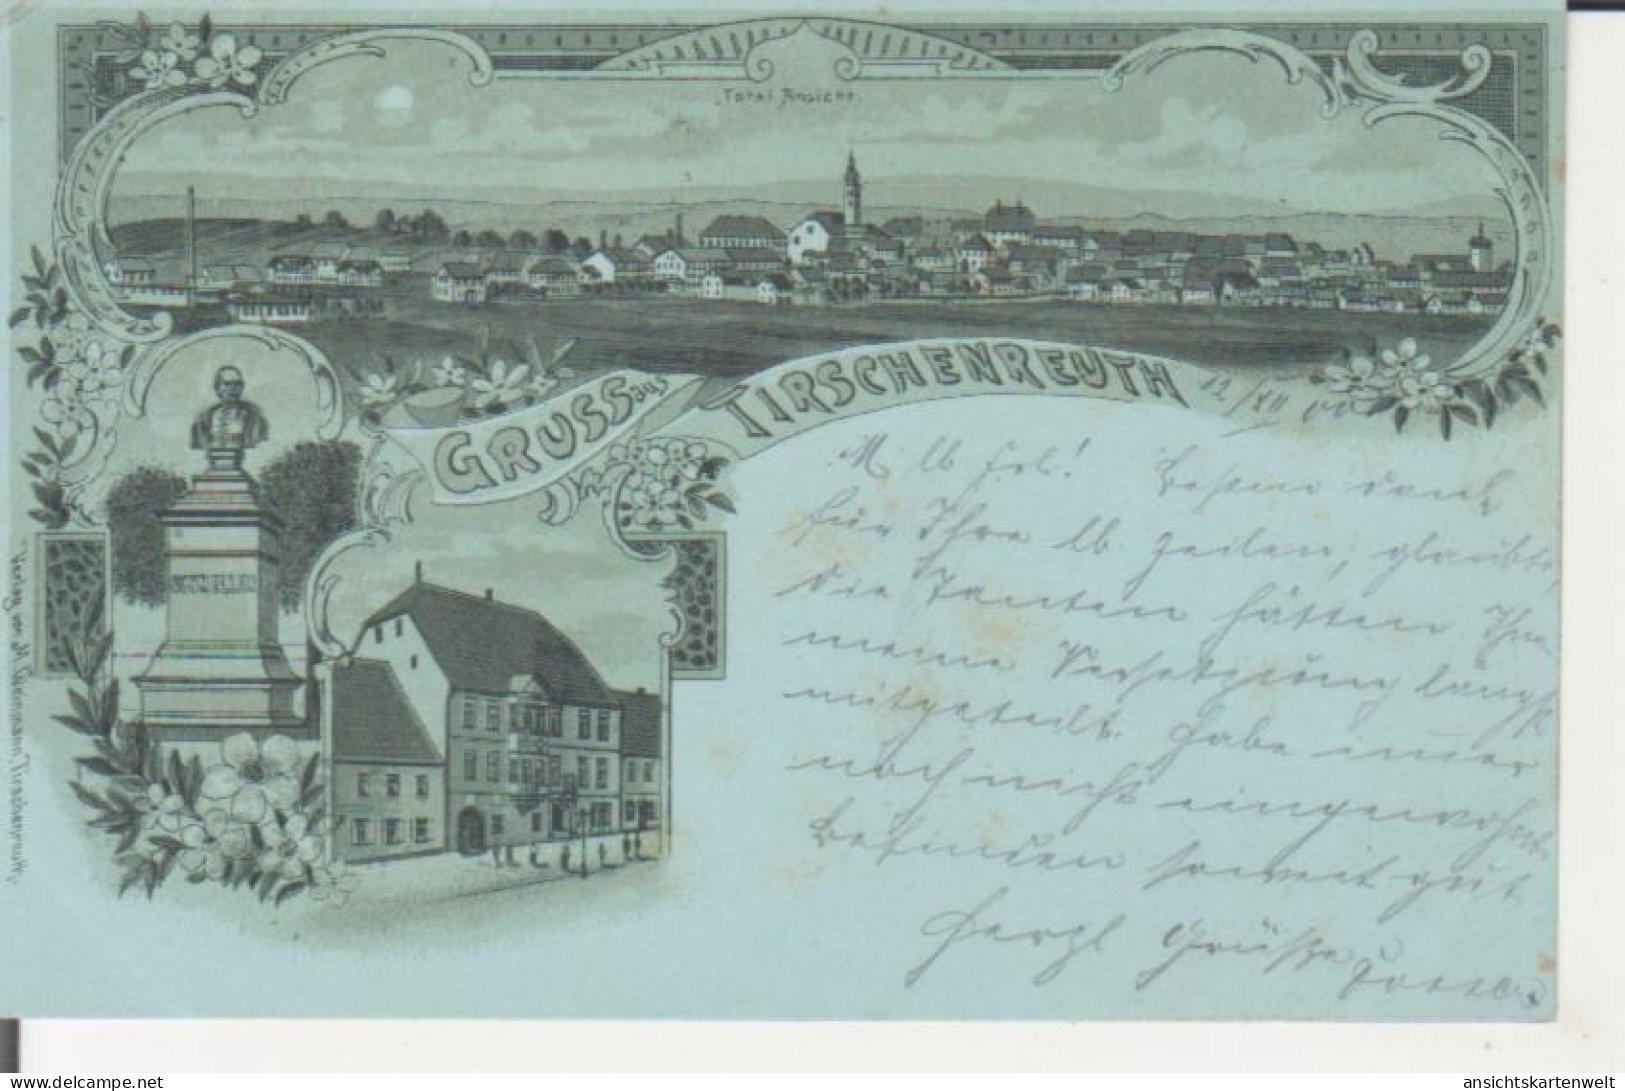 Total Ansicht.
GRUSS aus TIRSCHENREUTH
12/XII 00
M. lb Frl.! Besten Dank
für Ihre lb Zeilen, glaubte,
die Tanten hätten Ihn
meine Versetzung längst
mitgeteilt. Habe immer
noch nicht eingewöhnt.
Befinden soweit gut
Herzl Grüsse
SCHMELLER
Verlag von H. Niemann, Tirschenreuth.
delcampe.net
ansichtskartenwelt